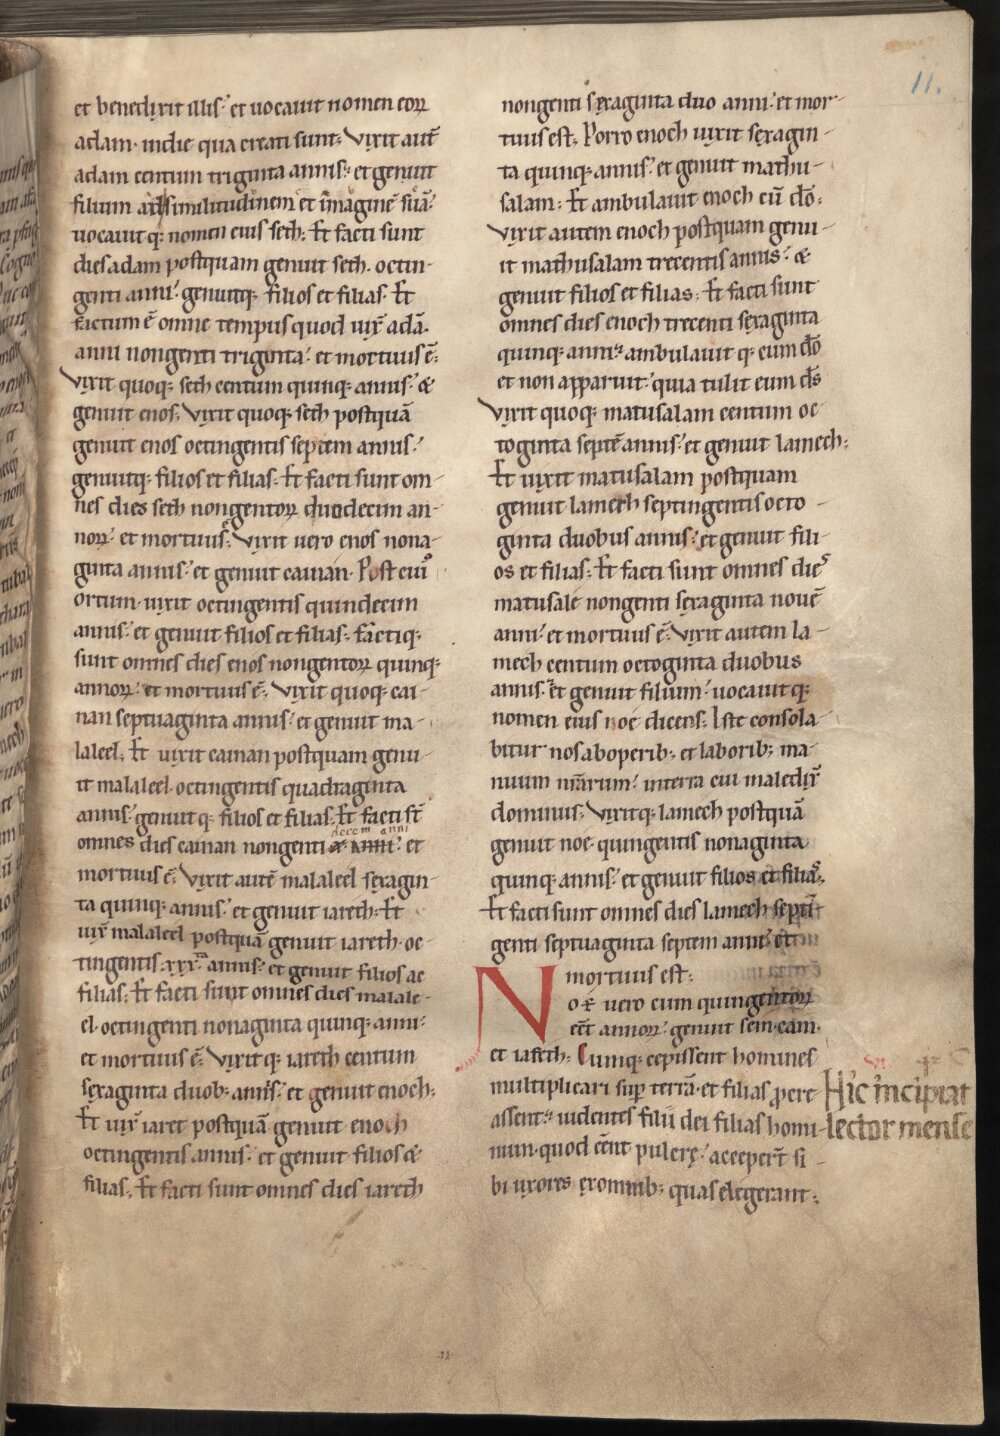 11.
et benedixit illis. et uocauit nomen eoꝝ
adam. indie qua creati sunt. Vixit aut̄
adam centum triginta annis. et genuit
filium ad similitudinem et imaginē suā.
uocauit q; nomen eius seth. Et facti sunt
dies adam postquam genuit seth. octin-
genti anni. genuitq; filios et filias. Et
factum ē omne tempus quod uix̄ adā.
anni nongenti triginta. et mortuus ē.
Vixit quoq; seth centum quinq; annis. &
genuit enos. Vixit quoq; seth postquā
genuit enos octingentis septem annis.
genuitq; filios et filias. Et facti sunt om-
nes dies seth nongentoꝝ duodecim an-
noꝝ. et mortuus. Vixit uero enos nona-
ginta annis. et genuit cainan. Post cui᷒
ortum uixit octingentis quindecim
annis. et genuit filios et filias. factiq;
sunt omnes dies enos nongentoꝝ quinq;
annoꝝ. et mortuus ē. Vixit quoq; cai-
nan septuaginta annis. et genuit ma-
laleel. Et uixit cainan postquam genu-
it malaleel. octingentis quadraginta
annis. genuit q; filios et filias. Et facti st̄
decem anni
omnes dies cainan nongenti et
mortuus ē. Vixit autē malaleel sexagin-
ta quinq; annis. et genuit iareth. Et
uix̄ malaleel postquā genuit iareth. oc-
tingentis xxx. annis. et genuit filios ac
filias. Et facti sunt omnes dies malale-
el. octingenti nonaginta quinq; anni.
et mortuus ē. Vixit q; iareth centum
sexaginta duob; annis. et genuit enoch.
Et uix̄ iaret postquā genuit enoch
octingentis annis. et genuit filios &
filias. Et facti sunt omnes dies iareth
nongenti sexaginta duo anni. et mor-
tuus est. Porro enoch uixit sexagin-
ta quinq; annis. et genuit mathu-
salam. Et ambulauit enoch cū dō.
Vixit autem enoch postquam genu-
it mathusalam trecentis annis. &
genuit filios et filias. Et facti sunt
omnes dies enoch trecenti sexaginta
quinq; anni. ambulauit q; cum dō
et non apparuit. quia tulit eum ds̄
Vixit quoq; matusalam centum oc-
toginta septē annis. et genuit lamech.
Et uixit matusalam postquam
genuit lamech septingentis octo-
ginta duobus annis. et genuit fili-
os et filias. Et facti sunt omnes dies
matusale nongenti sexaginta nouē
anni. et mortuus ē. Vixit autem la-
mech centum octoginta duobus
annis. et genuit filium. uocauit q;
nomen eius noe dicens. Iste consola-
bitur nos ab operib; et laborib; ma-
nuum nr̄arum. in terra cui maledix̄
dominus. Vixitq; lamech postquā
genuit noe. quingentis nonaginta
quinq; annis. et genuit filios et filias.
Et facti sunt omnes dies lamech septī-
genti septuaginta septem anni. et
mortuus est.
Noe uero cum quingentoꝝ
eēt annoꝝ. genuit sem. cam.
et iafeth. Cumq; cepissent homines
multiplicari sup̄ terrā. et filias procre
assent. uidentes filii dei filias homi-
num. quod eēnt pulcre. acceper̄t si-
bi uxores ex omnib; quas elegerant.
Hic incipiat
lector mense